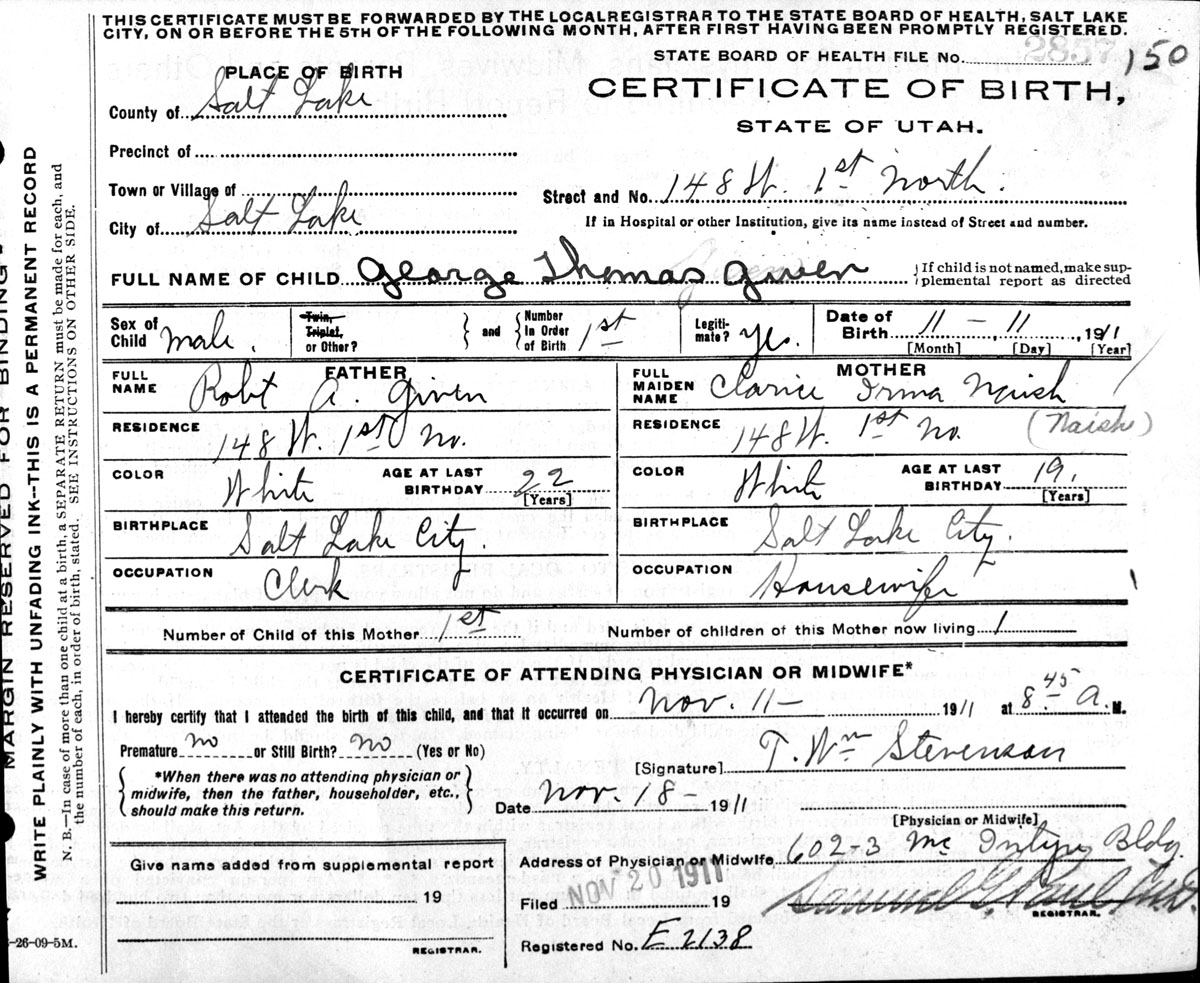 THIS CERTIFICATE MUST BE FORWARDED BY THE LOCAL REGISTRAR TO THE STATE BOARD OF HEALTH, SALT LAKE
CITY, ON OR BEFORE THE 5TH OF THE FOLLOWING MONTH, AFTER FIRST HAVING BEEN PROMPTLY REGISTERED.
STATE BOARD OF HEALTH FILE No. 2857 150
PLACE OF BIRTH
CERTIFICATE OF BIRTH,
County of Salt Lake
STATE OF UTAH.
Precinct of
Town or Village of
Street and No. 148 W. 1st North.
City of Salt Lake
If in Hospital or other Institution, give its name instead of Street and number.
FULL NAME OF CHILD George Thomas Given
If child is not named, make sup-
plemental report as directed
Sex of Child male.
Twin, Triplet, or Other?
and
Number In Order of Birth 1st
Legiti-mate? yes.
Date of Birth 11 - 11, 1911
[Month] [Day] [Year]
FATHER
FULL NAME Robt A. Given
RESIDENCE 148 W. 1st No.
COLOR White
AGE AT LAST BIRTHDAY 22
[Years]
BIRTHPLACE Salt Lake City.
OCCUPATION Clerk
MOTHER
FULL MAIDEN NAME Clarice Irma Naish
RESIDENCE 148 W. 1st No. (Naish)
COLOR White
AGE AT LAST BIRTHDAY 19.
[Years]
BIRTHPLACE Salt Lake City.
OCCUPATION Housewife
Number of Child of this Mother 1st
Number of children of this Mother now living 1
CERTIFICATE OF ATTENDING PHYSICIAN OR MIDWIFE*
I hereby certify that I attended the birth of this child, and that it occurred on Nov. 11- 1911 at 8 45 a. M.
Premature no or Still Birth? No (Yes or No)
[Signature] T. Wm Stevenson
*When there was no attending physician or
midwife, then the father, householder, etc.,
should make this return.
Date Nov. 18- 1911
[Physician or Midwife]
Give name added from supplemental report
19
REGISTRAR.
Address of Physician or Midwife 602-3 McIntyre Bldg.
Filed NOV 20 1911 19
REGISTRAR.
Registered No. E 2138
MARGIN RESERVED FOR BINDING.
WRITE PLAINLY WITH UNFADING INK--THIS IS A PERMANENT RECORD
N. B.—In case of more than one child at a birth, a SEPARATE RETURN must be made for each, and
the number of each, in order of birth, stated. SEE INSTRUCTIONS ON OTHER SIDE.
-26-09-5M.